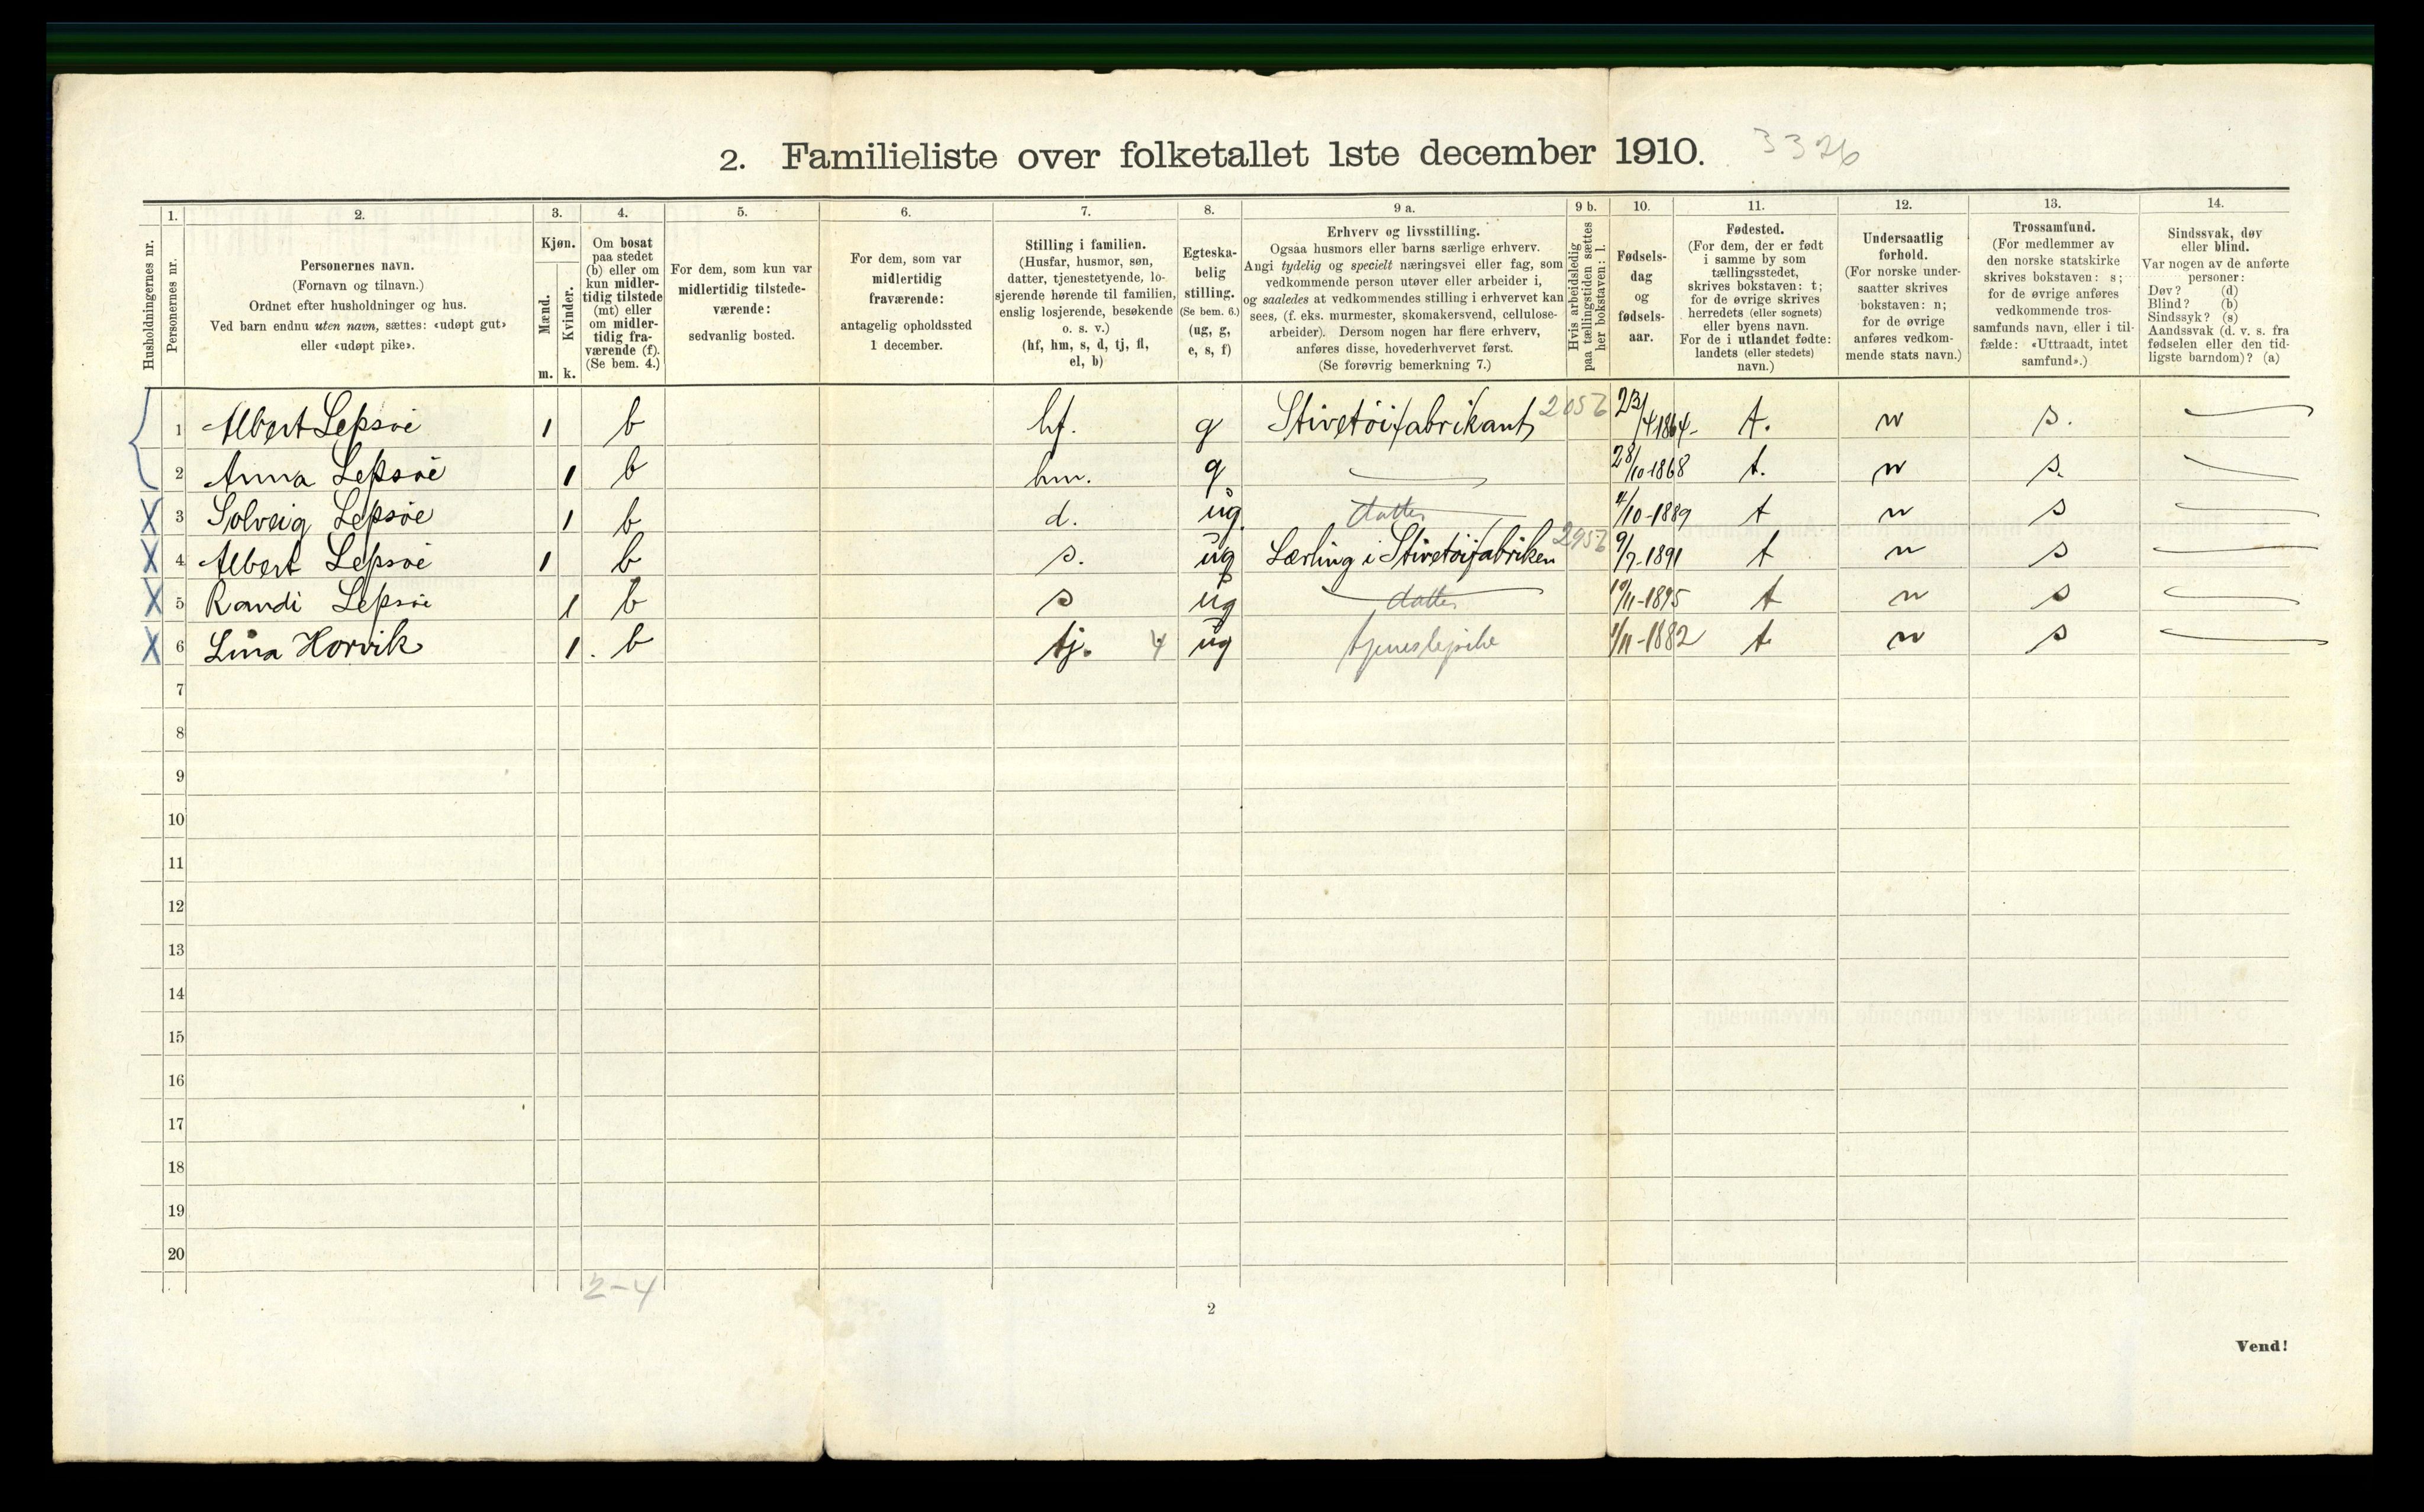 2. Familieliste over folketallet 1ste december 1910. 3326
1. 2. 3. 4. 5. 6. 7. 8. 9 a. 9 b. 10. 11. 12. 13. 14.
Husholdningernes nr.
Personernes nr.
Personernes navn.
(Fornavn og tilnavn.)
Ordnet efter husholdninger og hus.
Ved barn endnu uten navn, sættes: «udøpt gut»
eller «udøpt pike».
Kjøn.
Mænd.
Kvinder.
m. k.
Om bosat
paa stedet
(b) eller om
kun midler-
tidig tilstede
(mt) eller
om midler-
tidig fra-
værende (f).
(Se bem. 4.)
For dem, som kun var
midlertidig tilstede-
værende:
sedvanlig bosted.
For dem, som var
midlertidig
fraværende:
antagelig opholdssted
1 december.
Stilling i familien.
(Husfar, husmor, søn,
datter, tjenestetyende, lo-
sjerende hørende til familien,
enslig losjerende, besøkende
o. s. v.)
(hf, hm, s, d, tj, fl,
el, b)
Egteska-
belig
stilling.
(Se bem. 6.)
(ug, g,
e, s, f)
Erhverv og livsstilling.
Ogsaa husmors eller barns særlige erhverv.
Angi tydelig og specielt næringsvei eller fag, som
vedkommende person utøver eller arbeider i,
og saaledes at vedkommendes stilling i erhvervet kan
sees, (f. eks. murmester, skomakersvend, cellulose-
arbeider). Dersom nogen har flere erhverv,
anføres disse, hovederhvervet først.
(Se forøvrig bemerkning 7.)
Hvis arbeidsledig
paa tællingstiden sættes
her bokstaven: l.
Fødsels-
dag
og
fødsels-
aar.
Fødested.
(For dem, der er født
i samme by som
tællingsstedet,
skrives bokstaven: t;
for de øvrige skrives
herredets (eller sognets)
eller byens navn.
For de i utlandet fødte:
landets (eller stedets)
navn.)
Undersaatlig
forhold.
(For norske under-
saatter skrives
bokstaven: n;
for de øvrige
anføres vedkom-
mende stats navn.)
Trossamfund.
(For medlemmer av
den norske statskirke
skrives bokstaven: s;
for de øvrige anføres
vedkommende tros-
samfunds navn, eller i til-
fælde: «Uttraadt, intet
samfund».)
Sindssvak, døv
eller blind.
Var nogen av de anførte
personer:
Døv? (d)
Blind? (b)
Sindssyk? (s)
Aandssvak (d. v. s. fra
fødselen eller den tid-
ligste barndom)? (a)
1 Albert Lepsöe 1 b hf. g Stivetöifabrikant 23/4 1864- t. n s.
2 Anna Lepsöe 1 b hm. g 28/10 1868 t. n s.
X 3 Solveig Lepsöe 1 b d. ug. datter 4/10-1889 t n s
X 4 Albert Lepsöe 1 b s. ug Lærling i Stivetöifabriken 9/7-1891 t n s
X 5 Randi Lepsöe 1 b s ug datter 19/11-1895 t n s
X 6 Lina Horvik 1. b tj. 4 ug tjenestepike 1/11-1882 t. n s
7
8
9
10
11
12
13
14
15
16
17
18
19
20
2-4
2
Vend!